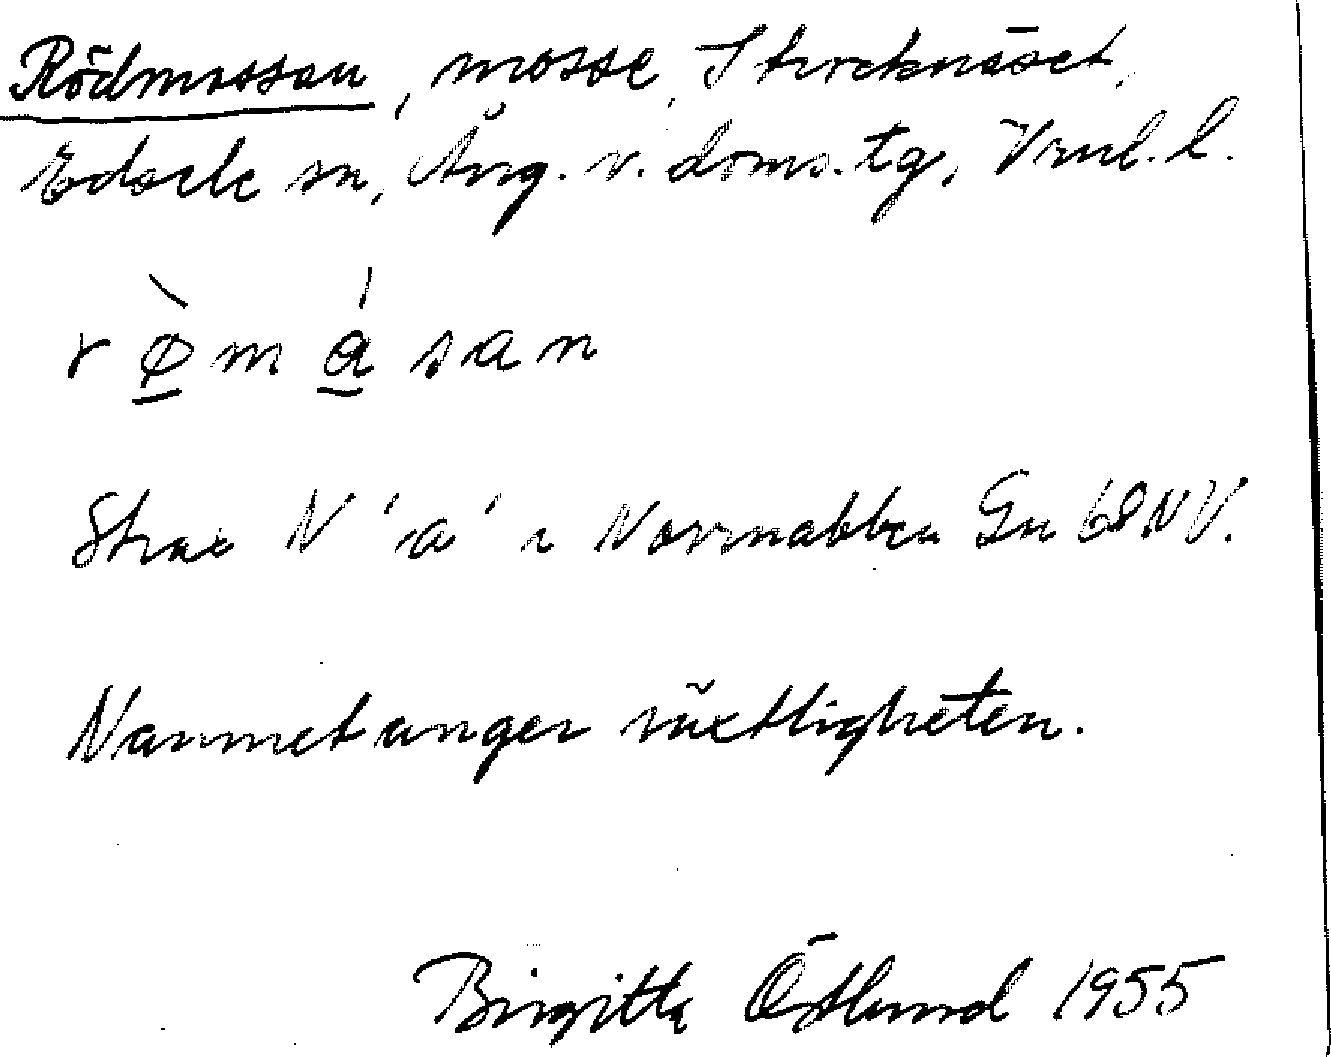 Rödmossan, mosse, Stocknäset,
Edsele sn, Ång. v. doms. tg, Vnrl. l.
r ø̀ m á s a n
Strax N 'a' i Norrnabben Gn 68 NV.
Namnet anger växtligheten.
Birgitta Östlund 1955